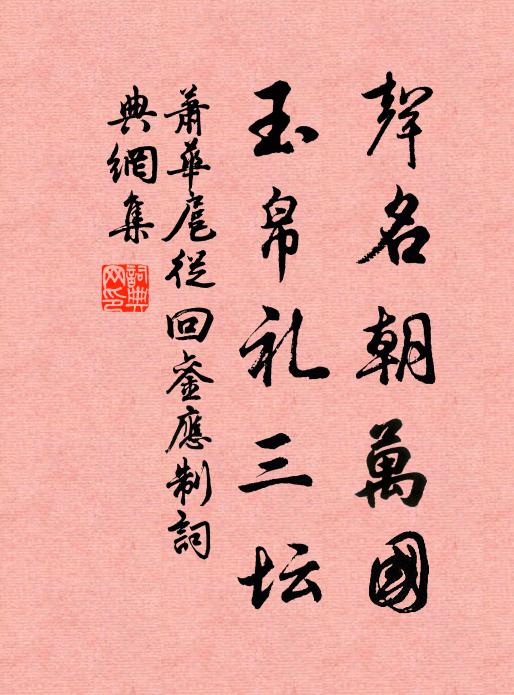 聲名朝萬國
玉帛礼三坛
蕭華扈從回鑾應制詞
典網集
詞典网印